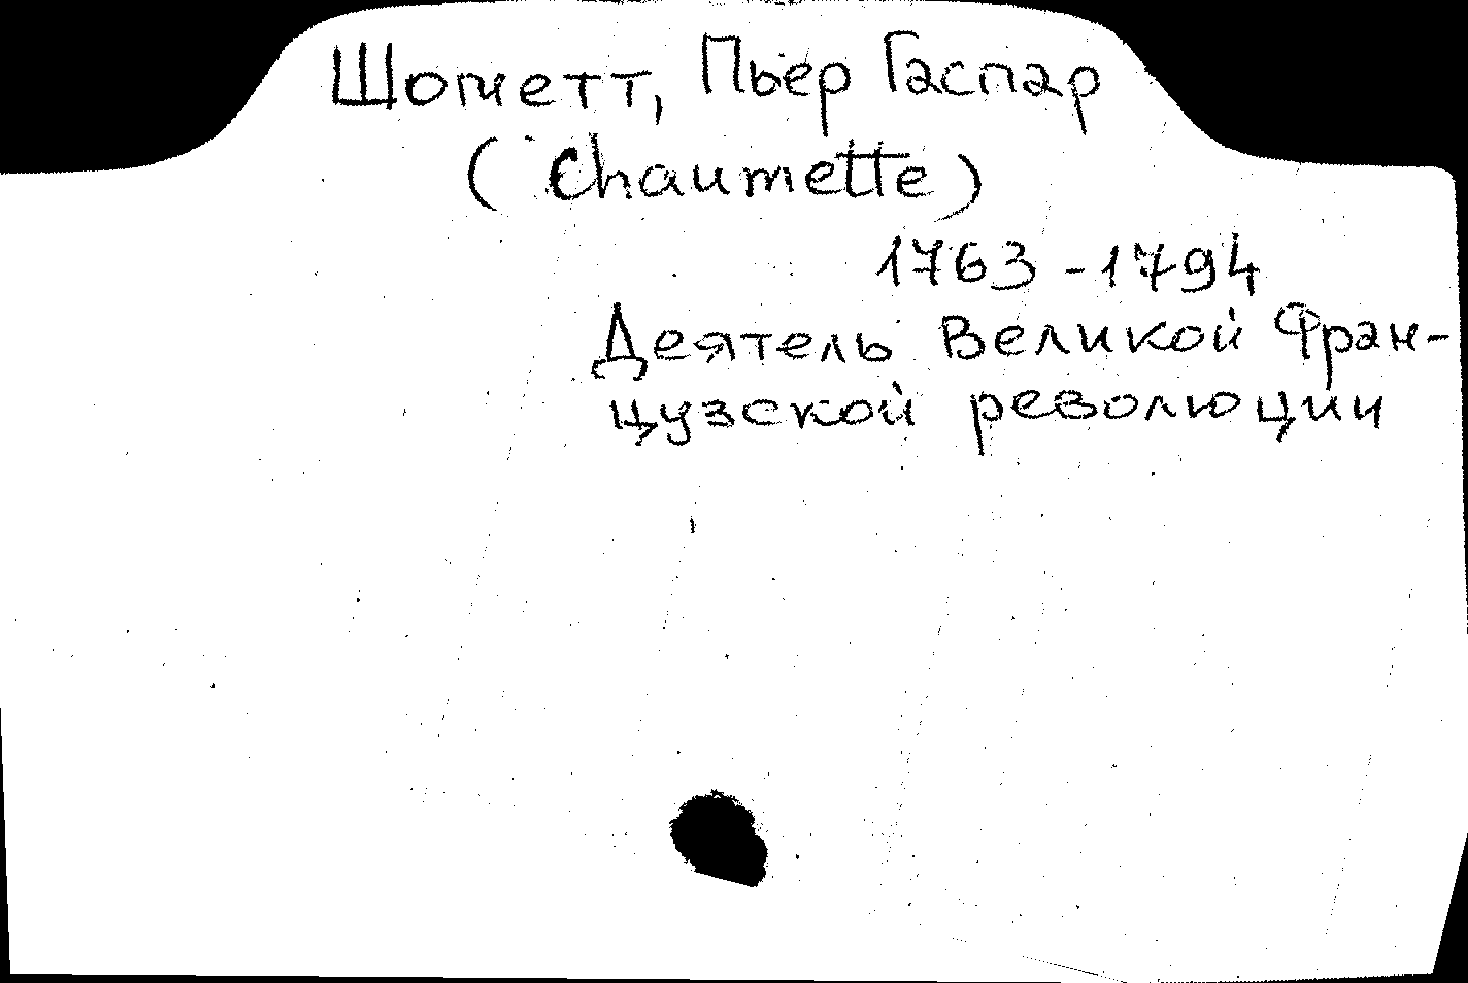 Шометт, Пьер Гаспар
(Chaumette)
1763-1794
Деятель Великой Фран-
цузской революции